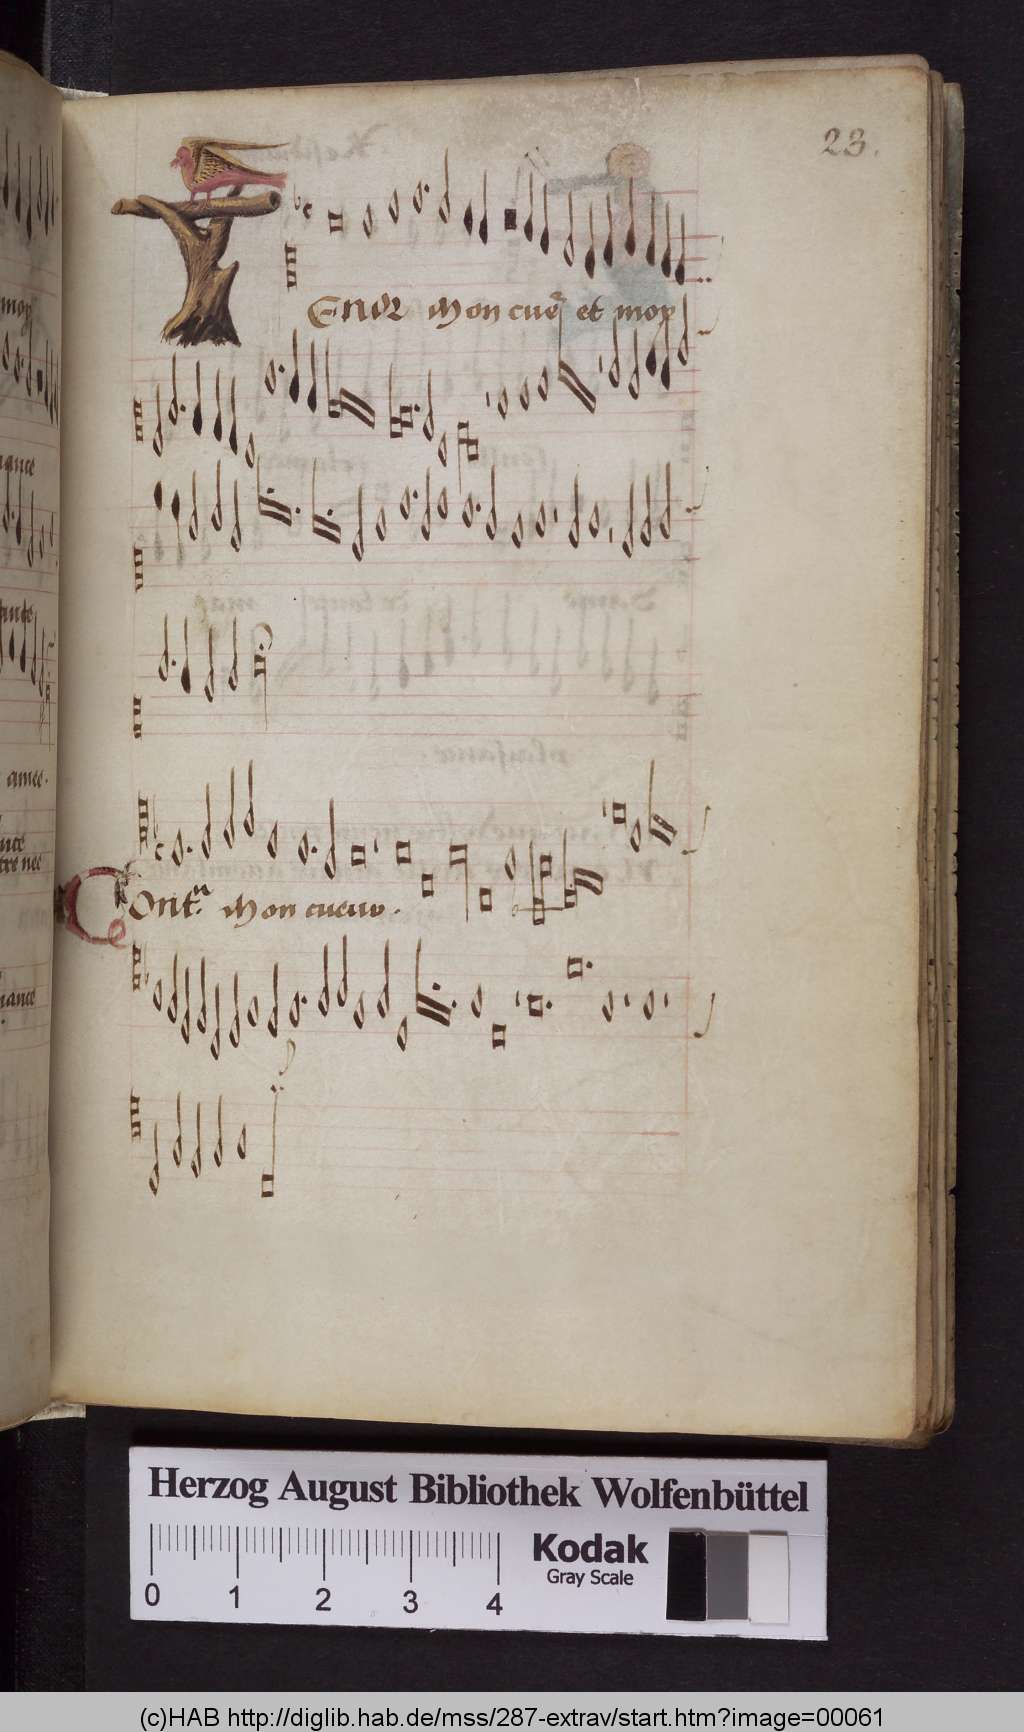 23.
Tenor Mon cuer et moy
Contra Mon cueur.
amee.
Herzog August Bibliothek Wolfenbüttel
0 1 2 3 4
Kodak
Gray Scale
(c)HAB http://diglib.hab.de/mss/287-extrav/start.htm?image=00061